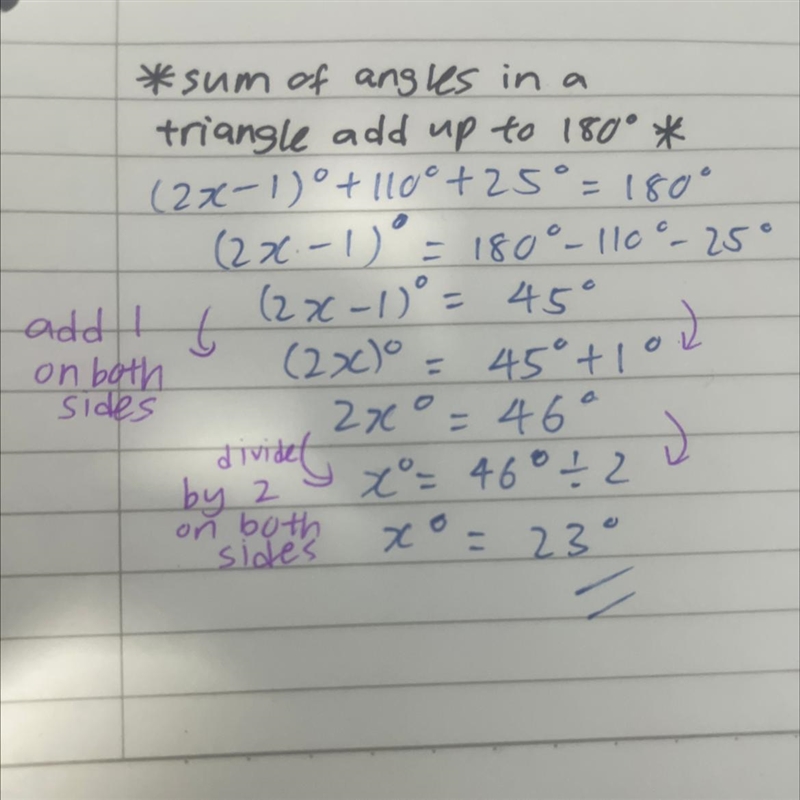 *sum of angles in a
triangle add up to 180° *
(2x-1)° + 110° + 25° = 180°
(2x-1)° = 180° - 110° - 25°
(2x-1)° = 45°
add 1
on both
sides
(2x)° = 45° + 1°
2x° = 46°
divide
by 2
on both
sides
x° = 46° ÷ 2
x° = 23°